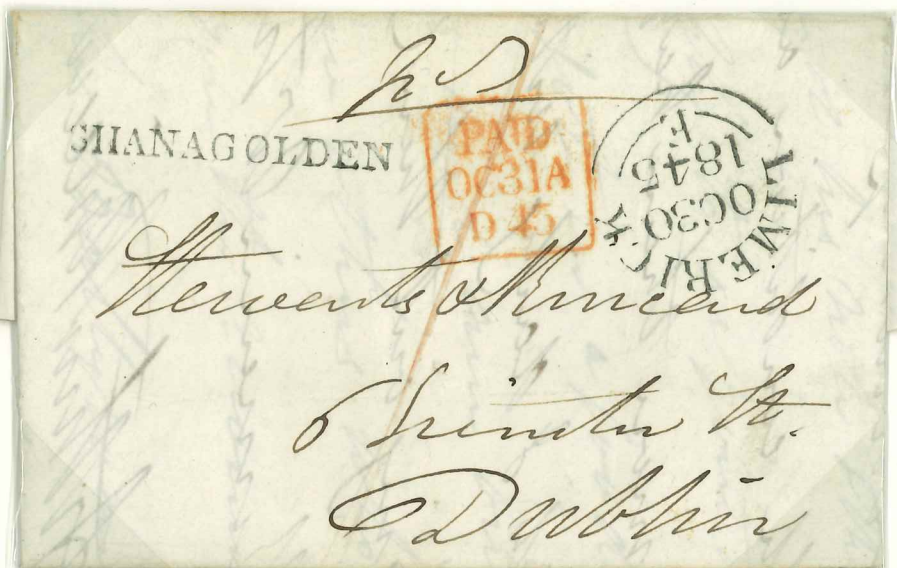 Pd
SHANAGOLDEN
PAID
OC31A
D 45
LIMERICK
OC30
1845
F.
Stewarts & Kincaid
6 Leinster St.
Dublin